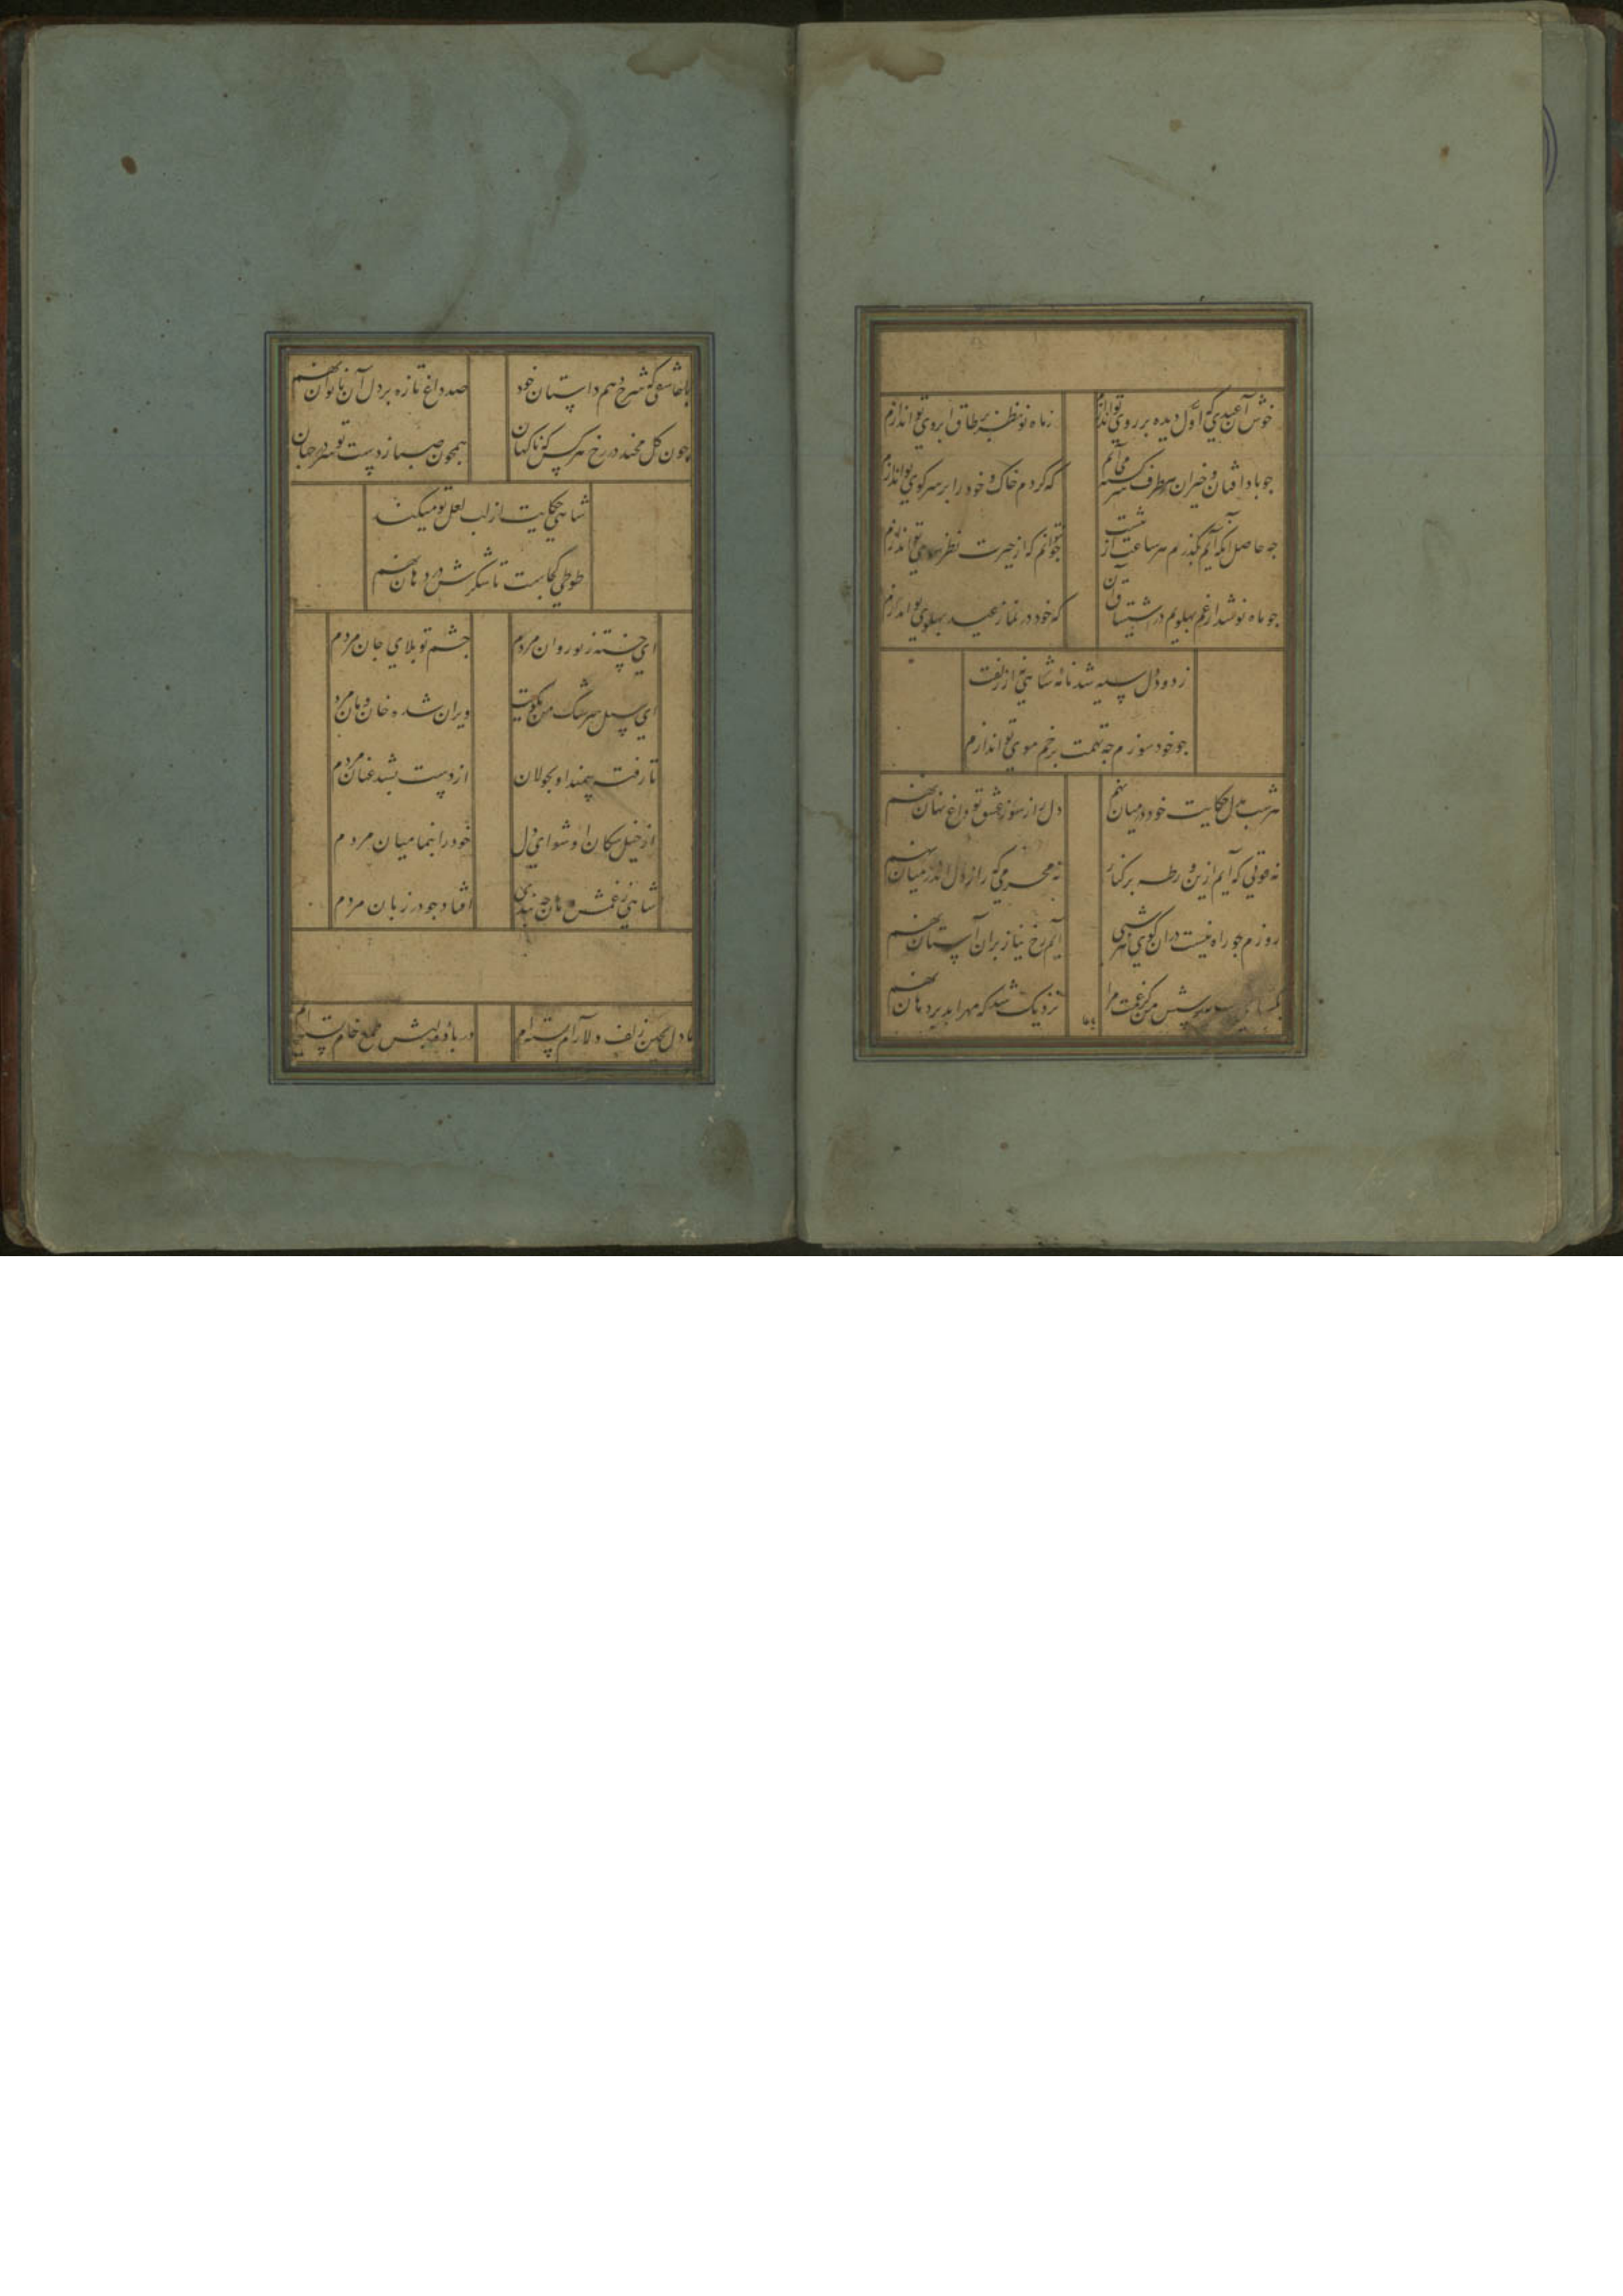 خوش آن عیدی که اول دیده بر روی تو اندازم
ز ماه نو نظر بر طاق ابروی تو اندازم
جو باد افتان و خیزان هر طرف سرکشته می آیم
که کردم خاک و خود را بر سر کوی تو اندازم
جه حاصل آنکه آیم بکذرم هر ساعت از بیشت
جو نتوانم که از حیرت نظر سوی تو اندازم
جو ماه نو شد از غم بهلویم در اشتیاق آن
که خود در نماز عید بهلوی تو اندازم
ز دود دل سیه شد نامه شاهی نه از زلفت
جو خود سوزم جه تهمت بر خم موی تو اندازم
هر شب بدل حکایت خود در میان نهم
دل را ز سوز عشق تو داغ نهان نهم
نه قوتی که آیم ازین ورطه بر کنار
نه محرمی که راز دل اندر میان نهم
روزم جو راه نیست در آن کوی هر شبی
آیم رخ نیاز بران آستان نهم
مرا
نزدیک شد که مهر ابد بر دهان نهم
با عا
با عاشقی که شرح دهم داستان خود
صد داغ تازه بر دل آن ناتوان نهم
جون کل مخند در رخ هر کس کز ناکهان
همجون صبا ز دست تو سر در جهان نهم
شاهی حکایت از لب لعل تو میکند
طوطی کجاست تا شکرش در دهان نهم
ای خسته ز تو روان مردم
جشم تو بلای جان مردم
ای سیل سرشک من بکویت
ویران شده خان و مان مردم
تا رفت سمند او بجولان
از دست بشد عنان مردم
از خیل سکان او شو ای دل
خود را بنما میان مردم
شاهی ز غمش دهان جه بندی
افتاد جو در زبان مردم
ما دل بجین زلف دلارام بسته ایم
در باده لبش طمع خام بسته ایم